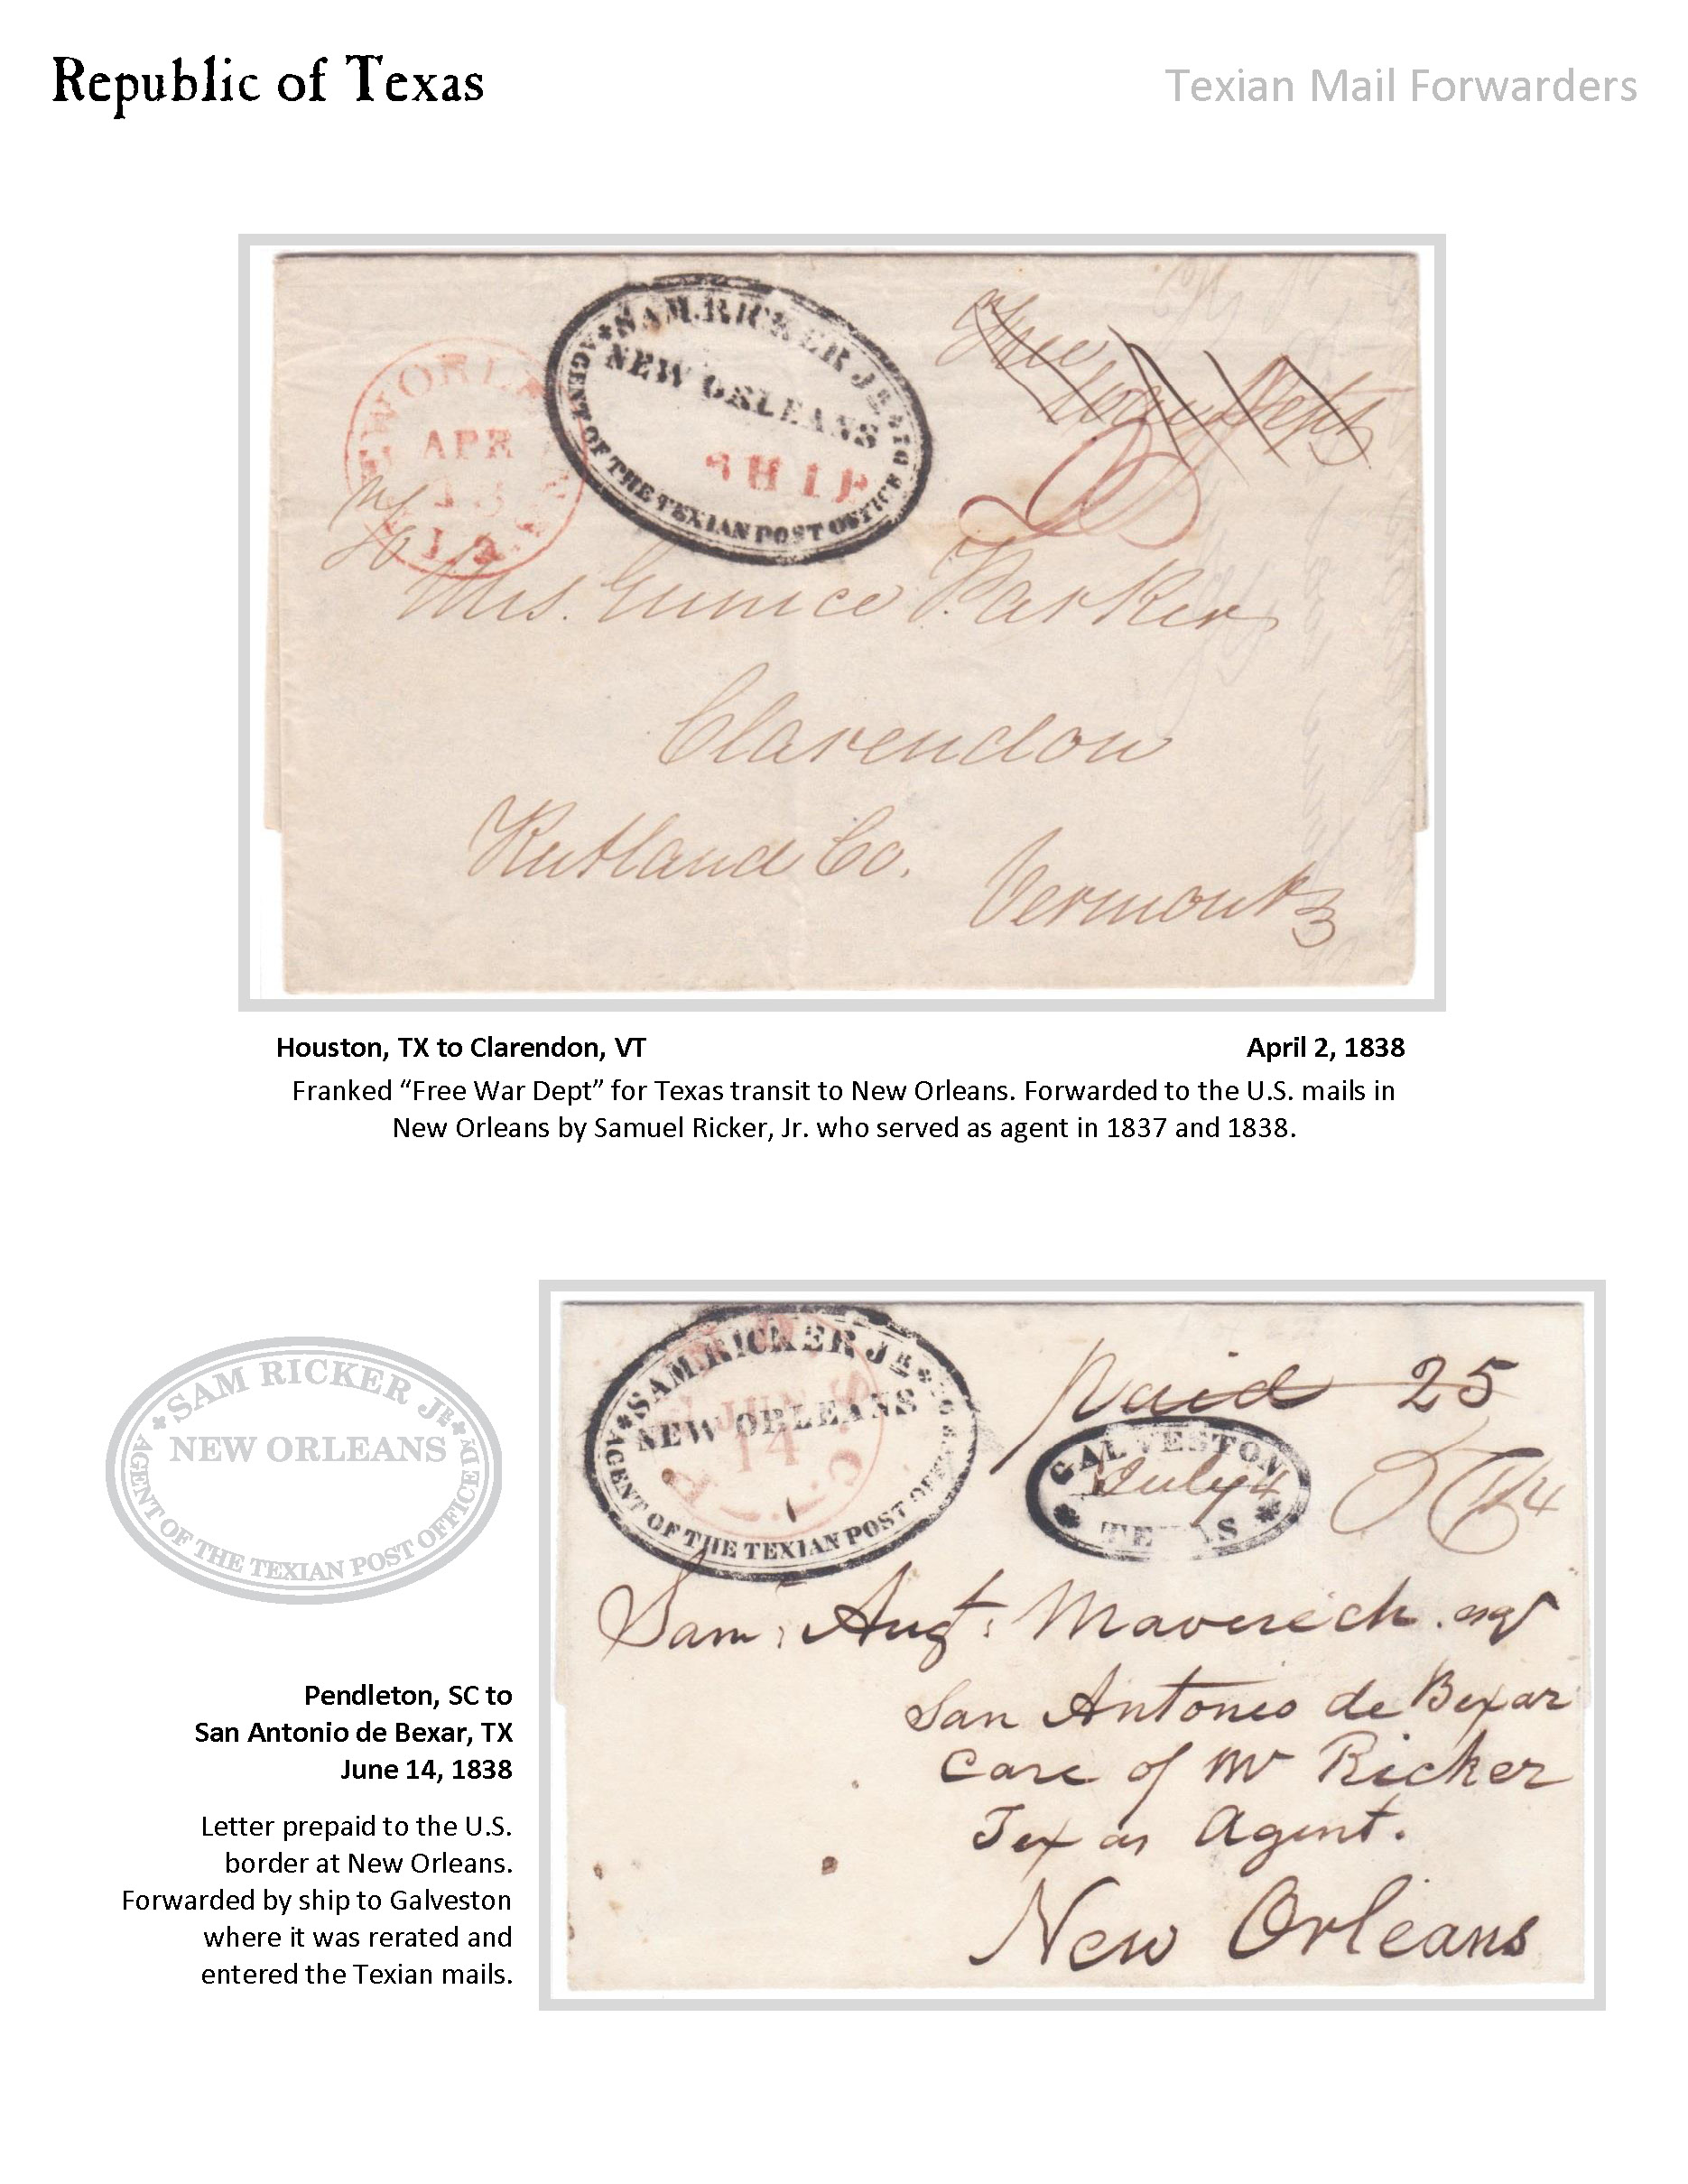 Republic of Texas
Texian Mail Forwarders
SAM. RICKER JR
NEW ORLEANS
AGENT OF THE TEXIAN POST OFFICE DI
SHIP
APR
LA
Free
War Dept
Mrs. Eunice Parker
Clarendon
Rutland Co.
Vermont
Houston, TX to Clarendon, VT
April 2, 1838
Franked “Free War Dept” for Texas transit to New Orleans. Forwarded to the U.S. mails in
New Orleans by Samuel Ricker, Jr. who served as agent in 1837 and 1838.
SAM RICKER JR
NEW ORLEANS
AGENT OF THE TEXIAN POST OFFICE DI
Pendleton, SC to
San Antonio de Bexar, TX
June 14, 1838
Letter prepaid to the U.S.
border at New Orleans.
Forwarded by ship to Galveston
where it was rerated and
entered the Texian mails.
SAM. RICKER JR
NEW ORLEANS
AGENT OF THE TEXIAN POST OFFICE
JUN
14
Paid 25
GALVESTON
July 4
TEXAS
Sam: Augt: Maverick. esqr
San Antonio de Bexar
Care of Mr Ricker
Texas Agent.
New Orleans